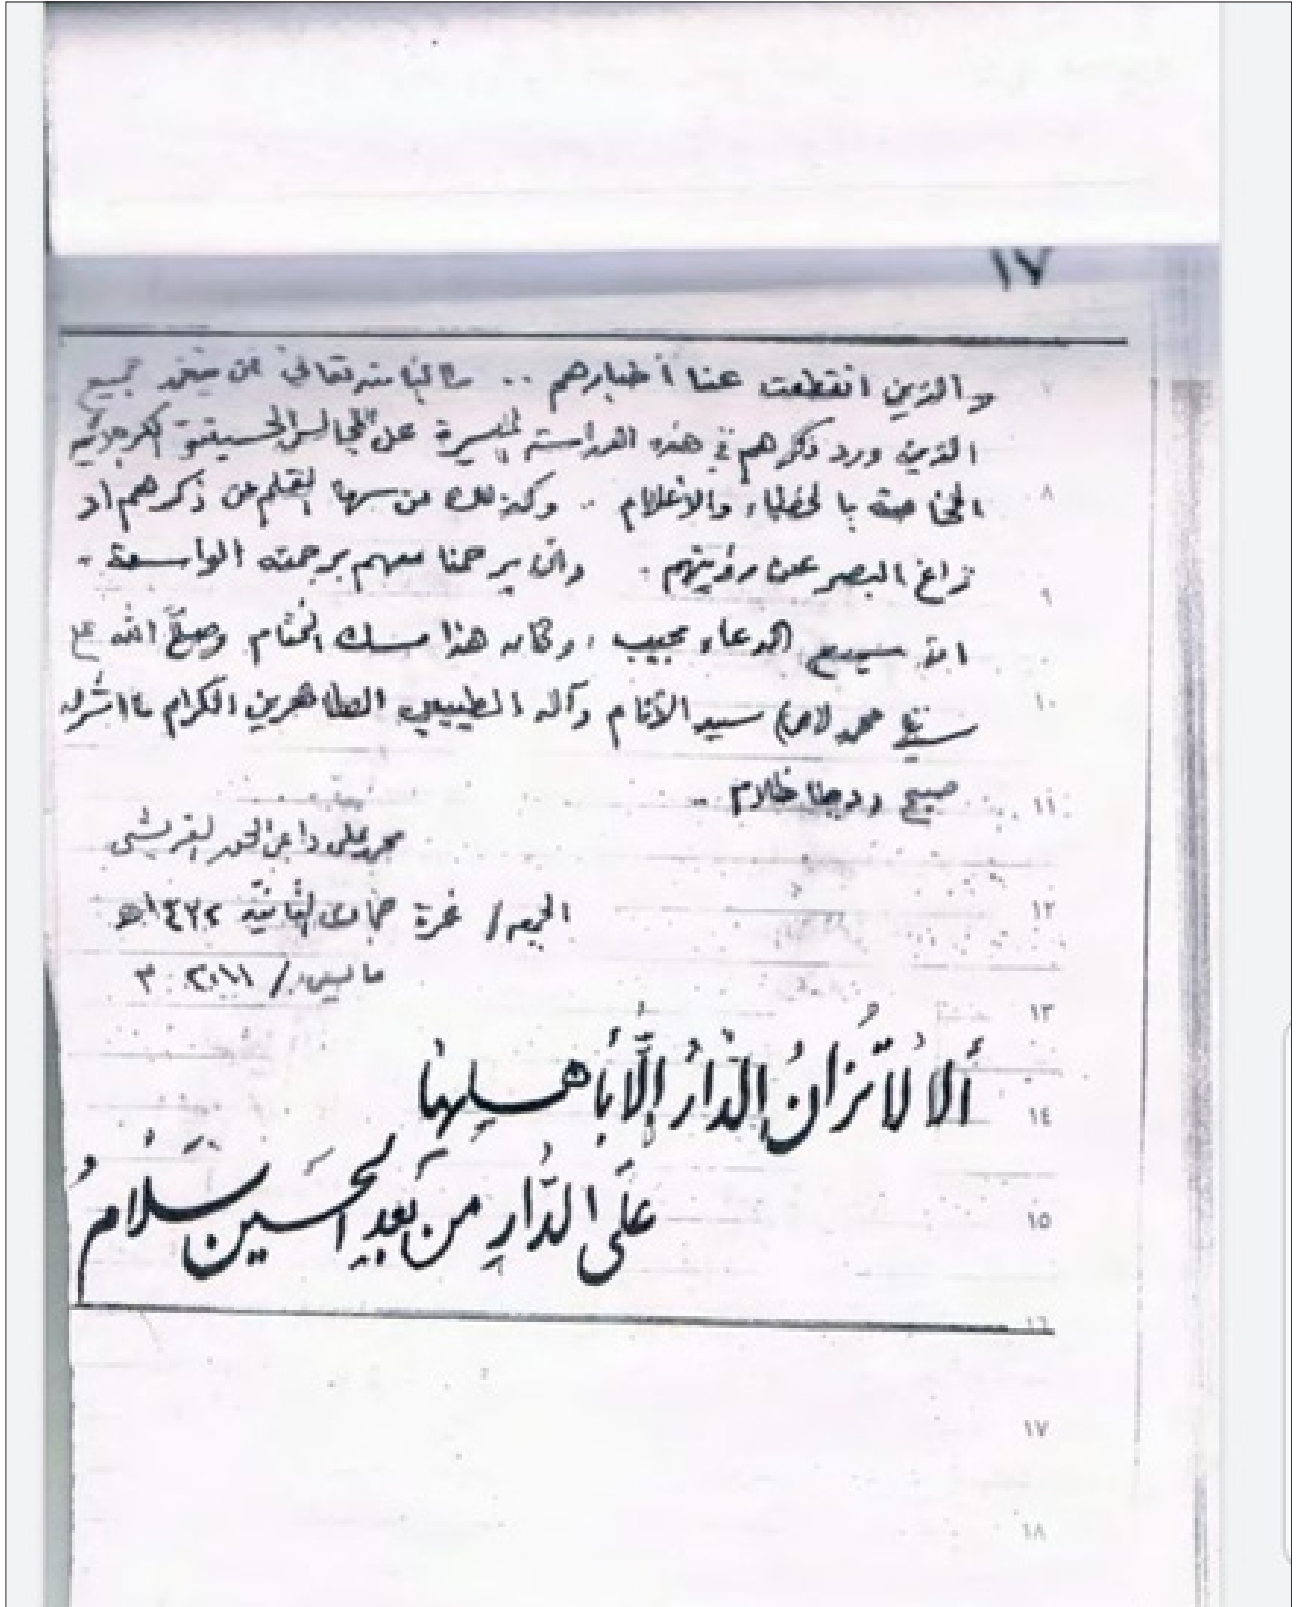 ١٧
والذين انقطعت عنا أخبارهم .. تعالى أن يتغمد جميع
الذين ورد ذكرهم في هذه الدراسة الميسرة عن المجالس الحسينية الكربلائية
الخاصة بالخطباء والأعلام .. وكذلك من سها القلم عن ذكرهم أو
زاغ البصر عن رؤيتهم . وان يرحمنا معهم برحمته الواسعة .
انه سميع الدعاء مجيب ، وكان هذا مسك الختام وصلى الله على
محمد (ص) سيد الأنام وآله الطيبين الطاهرين الكرام ما اشرق
صبح ودجا ظلام ..
محمد علي داعي الحق القريشي
الجمعه / غرة جمادى الثانية ١٤٣٢ هـ
٢٠١١
ألا لا تُزانُ الدّارُ إلّا بأهلِها
عَلَى الدّارِ من بَعدِ الحسَين سَلامُ
٧
٨
٩
١٠
١١
١٢
١٣
١٤
١٥
١٦
١٧
١٨